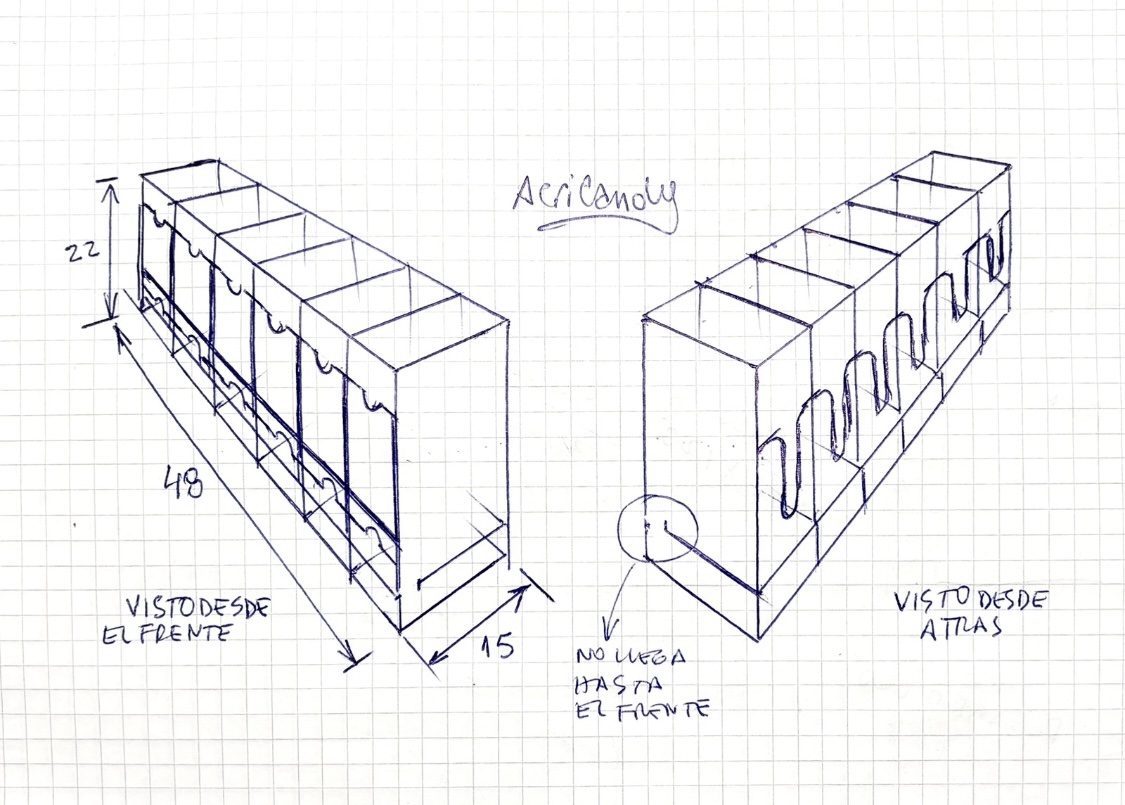 AcriCandy
22
48
15
VISTO DESDE
EL FRENTE
NO LLEGA
HASTA
EL FRENTE
VISTO DESDE
ATRAS